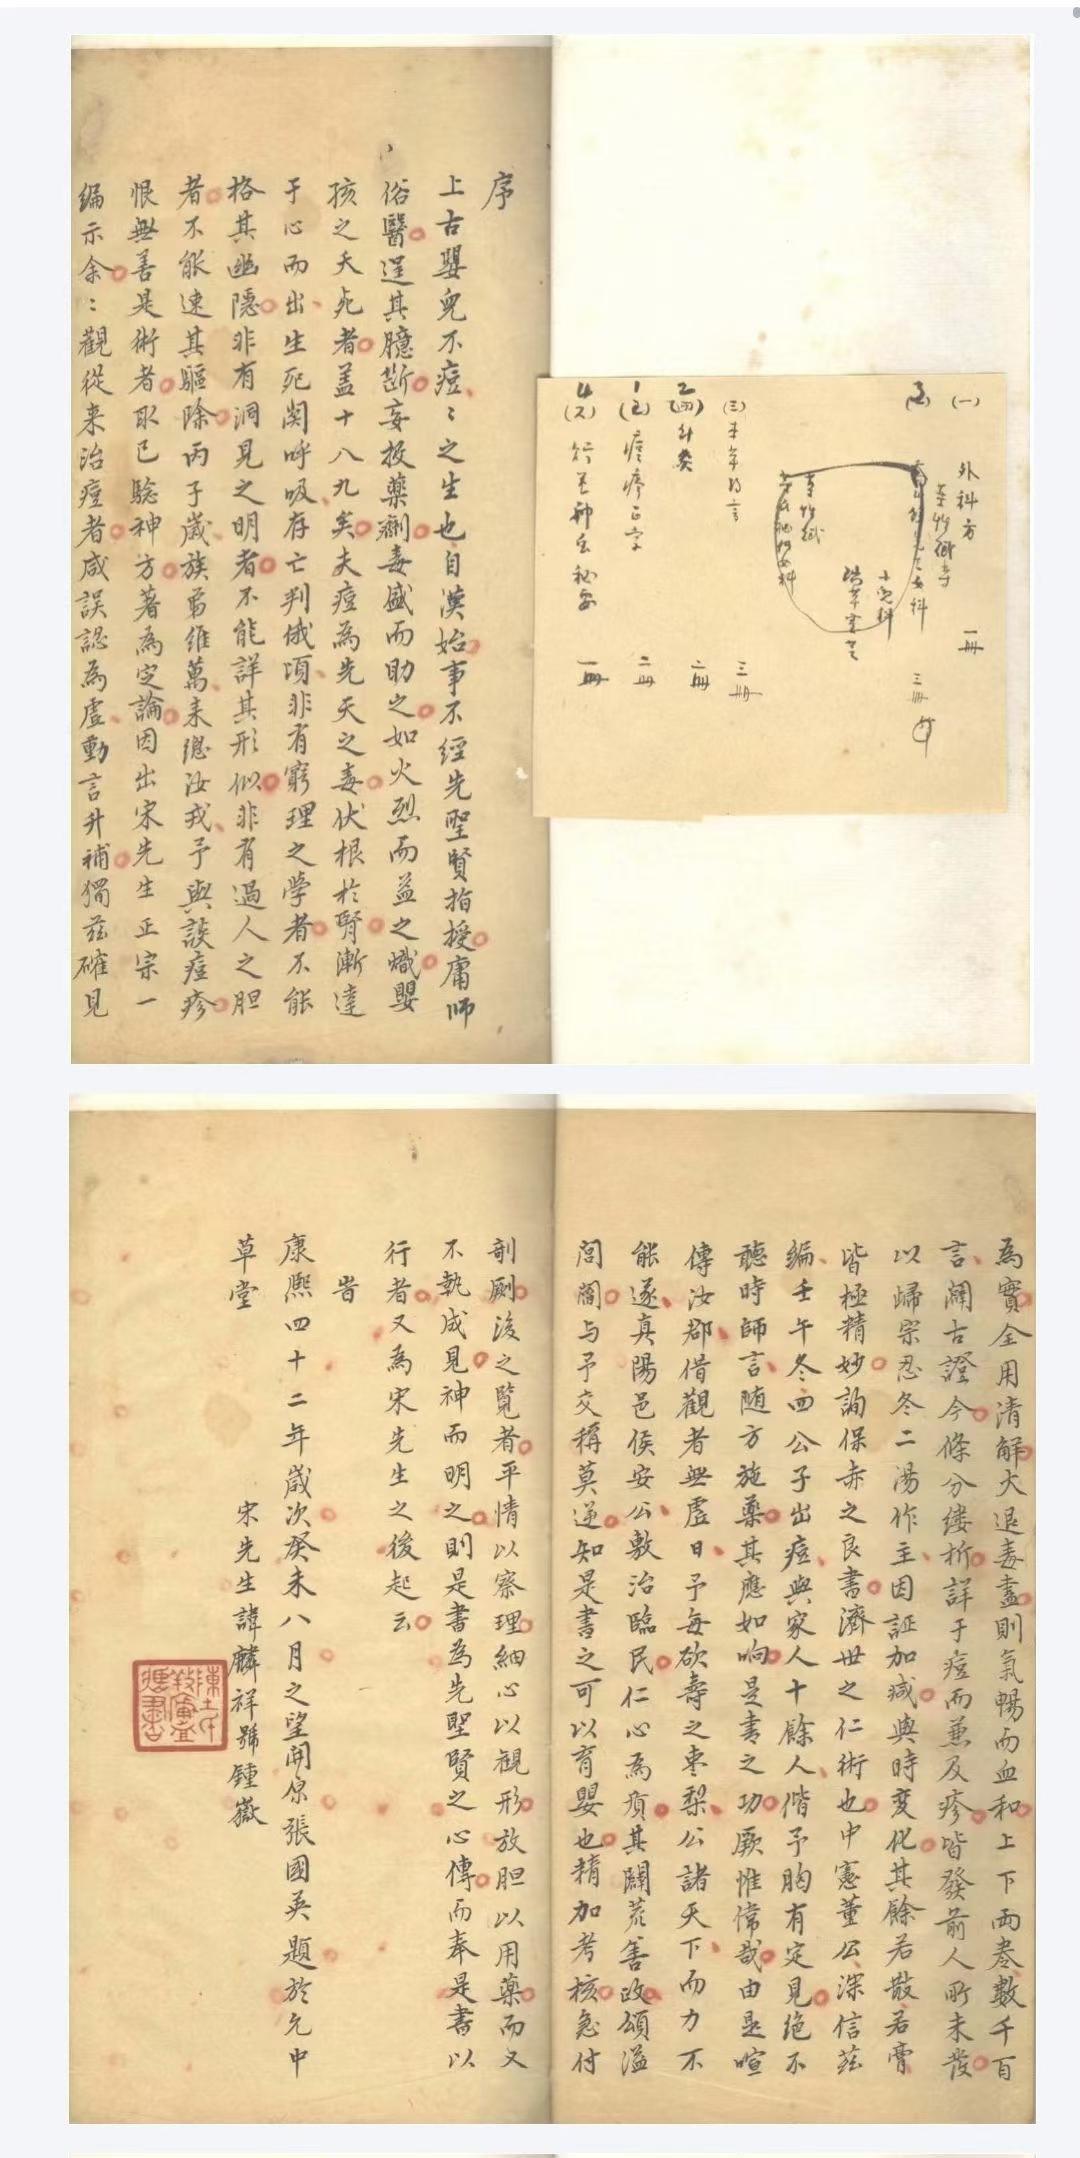 外科方 一冊
三冊
(三) 三冊
2 (四) 針灸 二冊
1 (五) 痘疹正宗 二冊
4 (六) 一冊
序
上古嬰兒不痘〻之生也自漢始事不經先聖賢指授庸師
俗醫逞其臆斷妄投藥劑毒盛而助之如火烈而益之熾嬰
孩之夭死者盖十八九矣夫痘為先天之毒伏根於腎漸達
于心而出生死関呼吸存亡判俄頃非有窮理之學者不能
格其幽隱非有洞見之明者不能詳其形似非有過人之胆
者不能速其驅除丙子歲族弟維萬来鎴汝戎予與談痘疹
恨無善是術者取已騐神方著為定論因出宋先生正宗一
編示余〻觀從来治痘者咸誤認為虛動言升補獨茲確見
為實全用清解大退毒盡則氣暢而血和上下两卷數千百
言闡古證今條分缕析詳于痘而兼及疹皆發前人所未發
以歸宗忍冬二湯作主因証加减與時变化其餘若散若膏
皆極精妙詢保赤之良書濟世之仁術也中憲董公深信茲
编壬午冬四公子出痘與家人十餘人偕予胸有定見绝不
聽時師言随方施藥其應如响是書之功厥惟偉哉由是喧
傳汝郡借觀者無虛日予每欲壽之枣梨公諸天下而力不
能遂真陽邑侯安公敷治臨民仁心為質其闢荒善政頌溢
閭閻与予交稱莫逆知是書之可以育嬰也精加考核急付
剞劂後之覧者平情以察理細心以観形放胆以用藥而又
不執成見神而明之則是書為先聖賢之心傳而奉是書以
行者又為宋先生之後起云
旹
康熙四十二年歲次癸未八月之望開原張國英題於允中
草堂 宋先生諱麟祥號鍾嶽